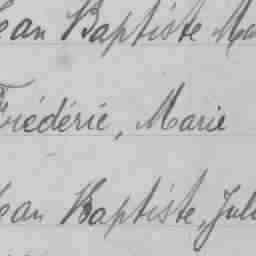 Jean Baptiste Ma
Frédéric, Marie
Jean Baptiste, Jul